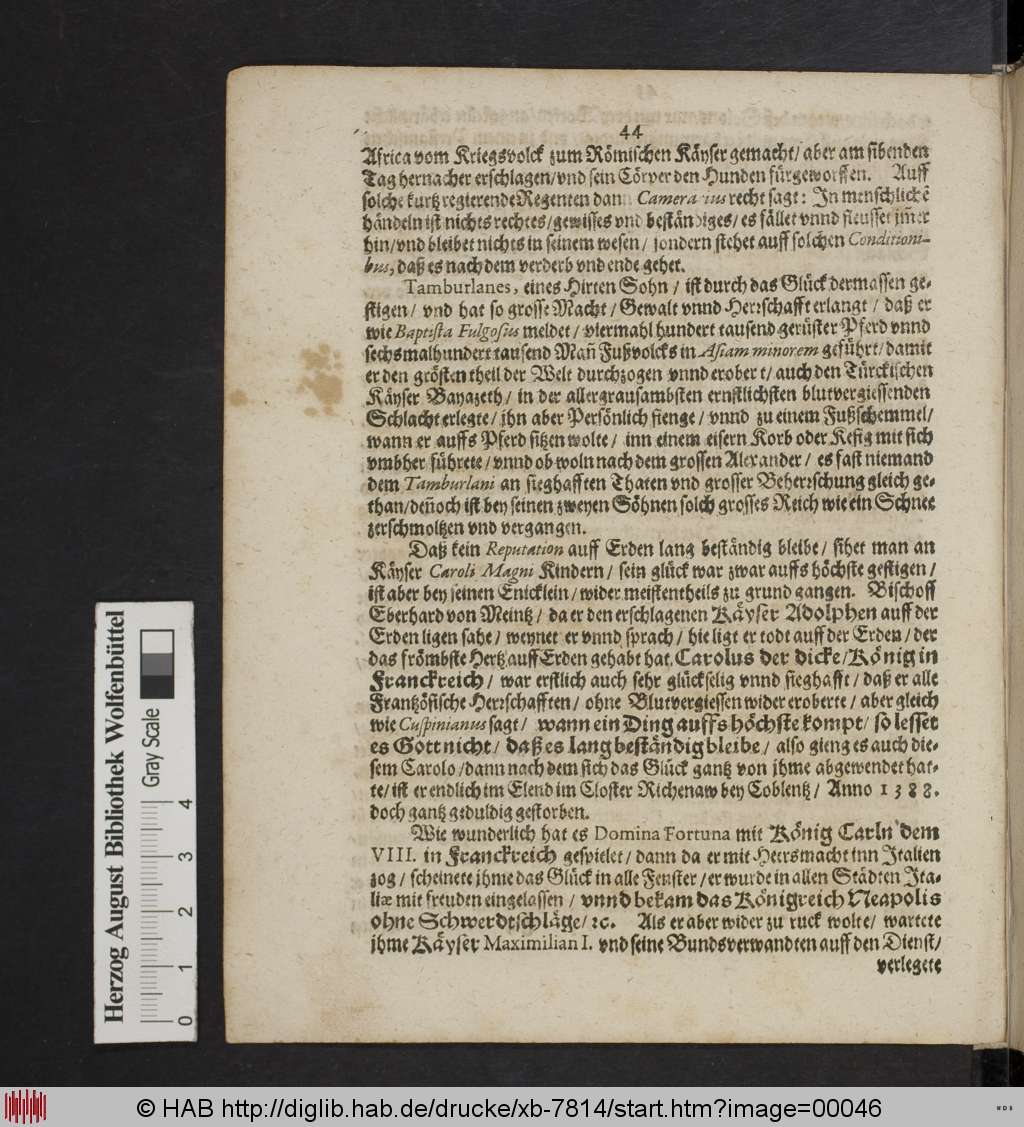 44
Africa vom Kriegsvolck zum Römischen Käyser gemacht/ aber am sibenden
Tag hernacher erschlagen/vnd sein Cörper den Hunden fürgeworffen. Auff
solche kurtz regierende Regenten dann recht sagt: In menschlichẽ
händeln ist nichts rechtes/gewisses vnd beständiges/ es fället vnnd fleusset im̃er
hin/vnd bleibet nichts in seinem wesen/ sondern stehet auff solchen Conditioni-
bus, daß es nach dem verderb vnd ende gehet.
Tamburlanes, eines Hirten Sohn / ist durch das Glück dermassen ge-
stigen/ vnd hat so grosse Macht/ Gewalt vnnd Herrschafft erlangt / daß er
wie Baptista Fulgosius meldet/ viermahl hundert tausend gerüster Pferd vnnd
sechsmalhundert tausend Man̄ Fußvolcks in Asiam minorem geführt/ damit
er den grösten theil der Welt durchzogen vnnd erobert/ auch den Türckischen
Käyser Bayazeth/ in der allergrausambsten ernstlichsten blutvergiessenden
Schlacht erlegte/ jhn aber Persönlich fienge/ vnnd zu einem Fußschemmel/
wann er auffs Pferd sitzen wolte/ inn einem eisern Korb oder Kefig mit sich
vmbher führete/vnnd ob woln nach dem grossen Alexander/ es fast niemand
dem Tamburlani an sieghafften Thaten vnd grosser Beherrschung gleich ge-
than/den̄och ist bey seinen zweyen Söhnen solch grosses Reich wie ein Schnee
zerschmoltzen vnd vergangen.
Daß kein Reputation auff Erden lang beständig bleibe/ sihet man an
Käyser Caroli Magni Kindern/ sein glück war zwar auffs höchste gestigen/
ist aber bey seinen Enicklein/ wider meistentheils zu grund gangen. Bischoff
Eberhard von Meintz/ da er den erschlagenen Käyser Adolphen auff der
Erden ligen sahe/ weynet er vnnd sprach/ hie ligt er todt auff der Erden/ der
das frömbste Hertz auff Erden gehabt hat. Carolus der dicke/König in
Franckreich/ war erstlich auch sehr glückselig vnnd sieghafft/ daß er alle
Frantzösische Herrschafften/ ohne Blutvergiessen wider eroberte/ aber gleich
wie Cuspinianus sagt/ wann ein Ding auffs höchste kompt/ so lesset
es Gott nicht/ daß es lang beständig bleibe/ also gieng es auch die-
sem Carolo/dann nach dem sich das Glück gantz von jhme abgewendet hat-
te/ ist er endlich im Elend im Closter Richenaw bey Coblentz/ Anno 1388.
doch gantz geduldig gestorben.
Wie wunderlich hat es Domina Fortuna mit König Carln dem
VIII. in Franckreich gespielet/ dann da er mit Heersmacht inn Italien
zog/ scheinete jhme das Glück in alle Fenster/er wurde in allen Städten Ita-
liæ mit freuden eingelassen/ vnnd bekam das Königreich Neapolis
ohne Schwerdtschläge/ ꝛc. Als er aber wider zu ruck wolte/ wartete
jhme Käyser Maximilian I. vnd seine Bundsverwandten auff den Dienst/
verlegete
Herzog August Bibliothek Wolfenbüttel
Gray Scale
0 1 2 3 4
© HAB http://diglib.hab.de/drucke/xb-7814/start.htm?image=00046